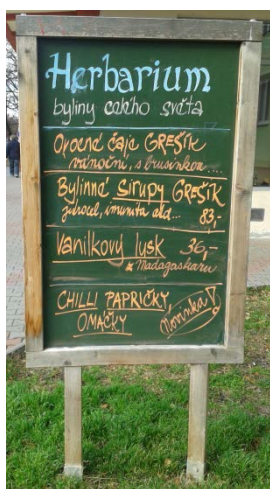 Herbarium
byliny celého světa
Ovocné čaje GREŠÍK
vánoční, s brusinkou....
Bylinné sirupy GREŠÍK
jitrocel, imunita atd... 83,-
Vanilkový lusk 36,-
z Madagaskaru
CHILLI PAPRIČKY,
OMAČKY
Novinka!